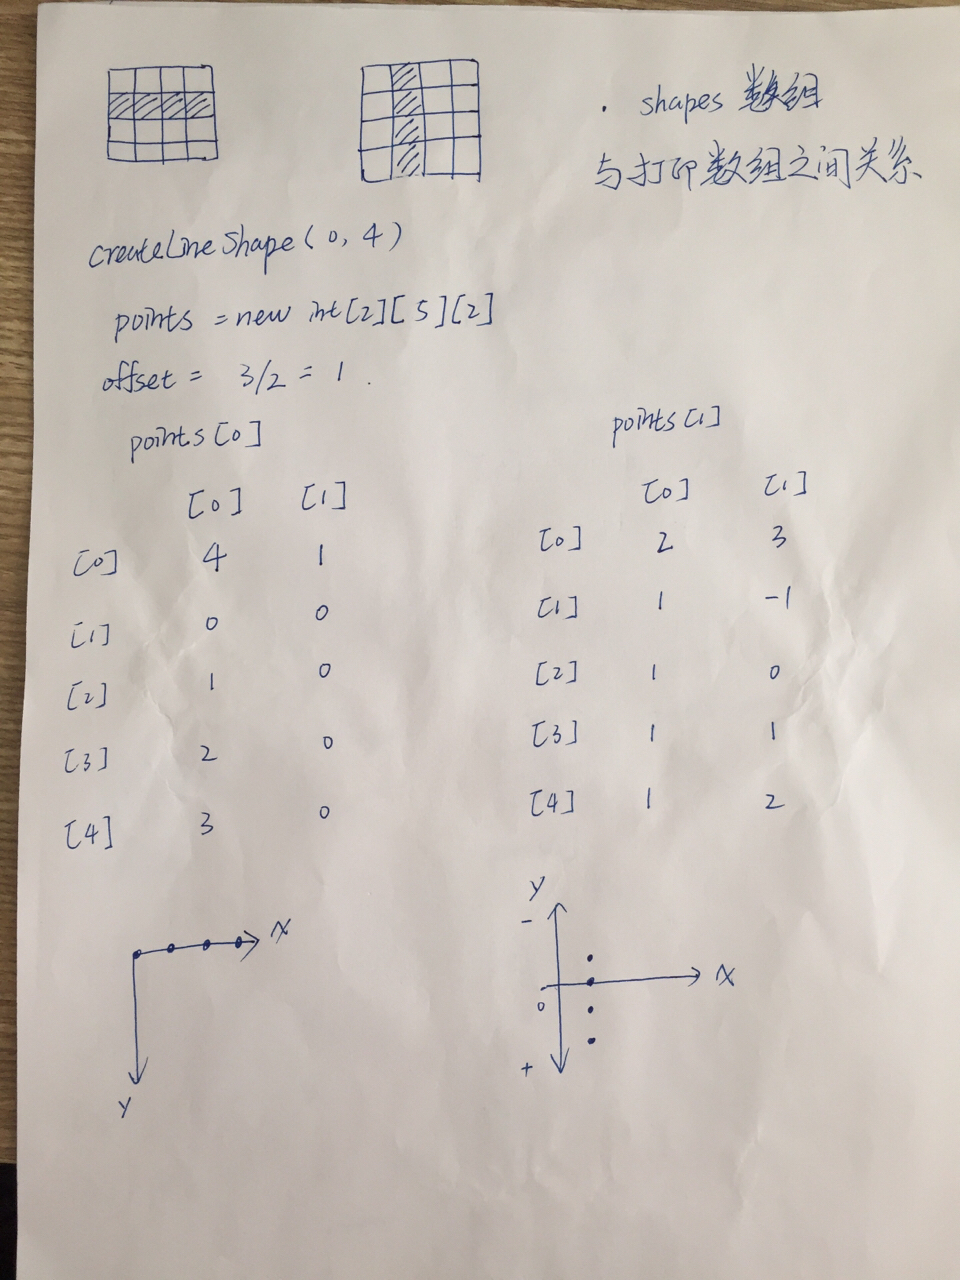 · shapes 数组
与打印数组之间关系
createLineShape(0, 4)
points = new int[2][5][2]
offset = 3/2 = 1 .
points[0]
[0] [1]
[0] 4 1
[1] 0 0
[2] 1 0
[3] 2 0
[4] 3 0
points[1]
[0] [1]
[0] 2 3
[1] 1 -1
[2] 1 0
[3] 1 1
[4] 1 2
X
Y
Y
-
X
0
+